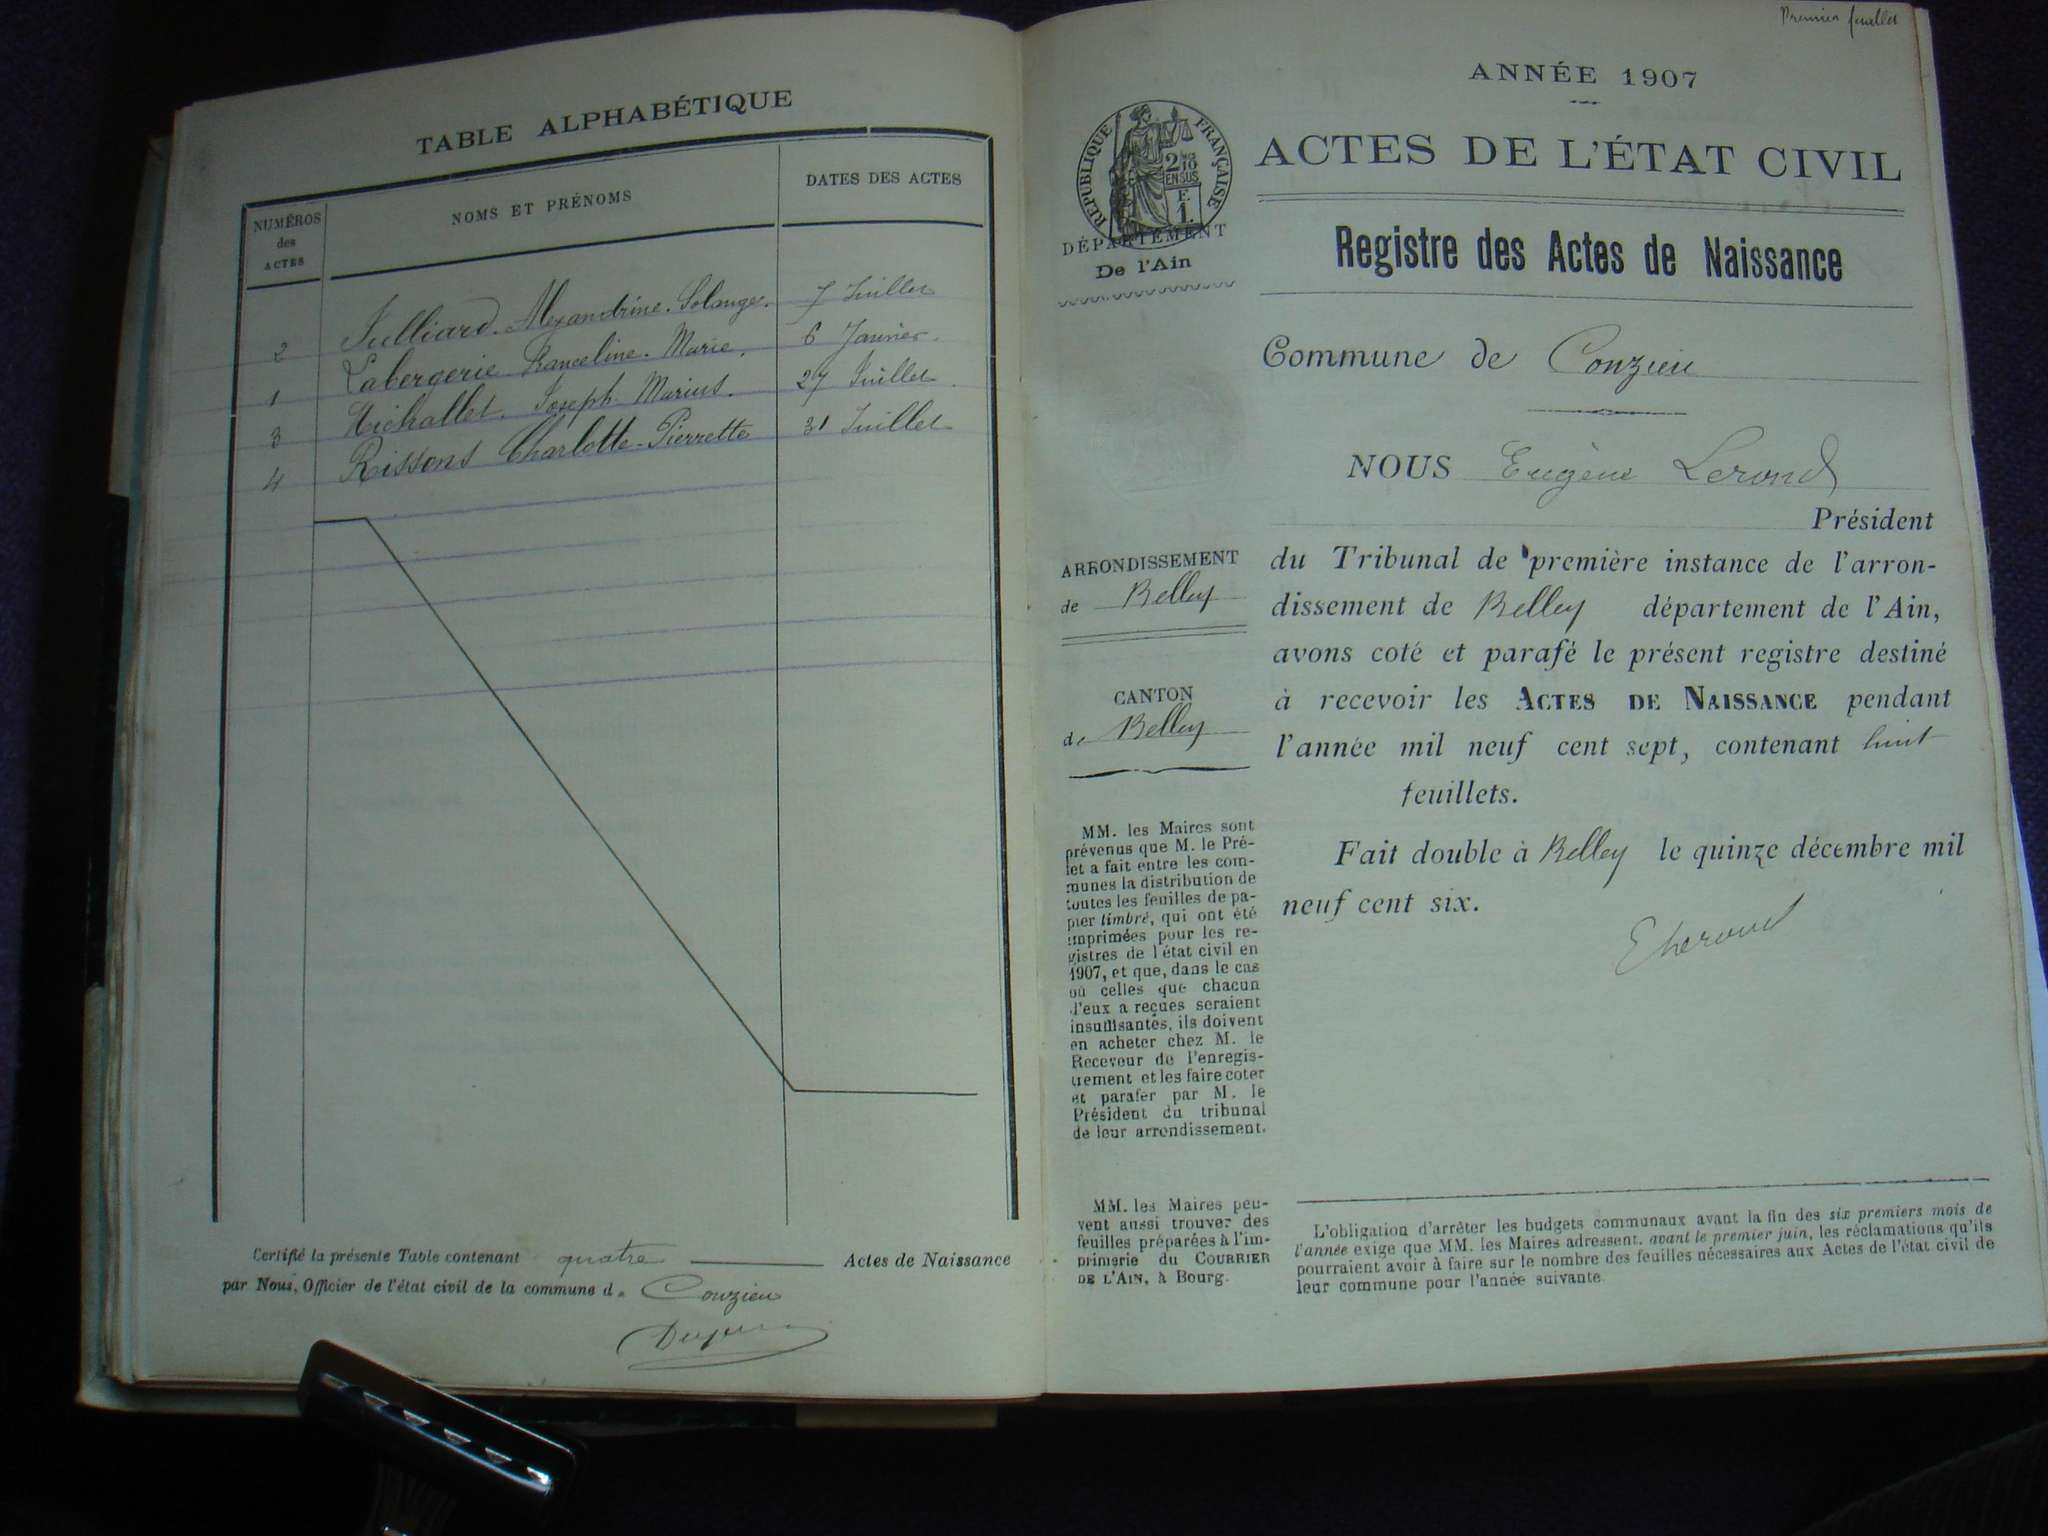 TABLE ALPHABÉTIQUE
NUMÉROS des ACTES
NOMS ET PRÉNOMS
DATES DES ACTES
2 Julliard. Alexandrine. Solange. 7 Juillet
1 Labergerie Franceline. Marie. 6 Janvier.
3 Michallet. Joseph. Marius. 27 Juillet.
4 Rissons Charlotte-Pierrette 31 Juillet
Certifié la présente Table contenant quatre Actes de Naissance
par Nous, Officier de l'état civil de la commune de Conzieu
Premier feuillet
ANNÉE 1907
RÉPUBLIQUE FRANÇAISE
2/10 EN SUS
E
1.
DÉPARTEMENT
De l'Ain
ACTES DE L'ÉTAT CIVIL
Registre des Actes de Naissance
Commune de Conzieu
NOUS Eugène Lerond
Président
du Tribunal de première instance de l'arron-
dissement de Belley département de l'Ain,
avons coté et parafé le présent registre destiné
à recevoir les ACTES DE NAISSANCE pendant
l'année mil neuf cent sept, contenant huit
feuillets.
Fait double à Belley le quinze décembre mil
neuf cent six.
E Lerond
ARRONDISSEMENT
de Belley
CANTON
de Belley
MM. les Maires sont
prévenus que M. le Pré-
fet a fait entre les com-
munes la distribution de
toutes les feuilles de pa-
pier timbré, qui ont été
imprimées pour les re-
gistres de l'état civil en
1907, et que, dans le cas
où celles que chacun
d'eux a reçues seraient
insuffisantes, ils doivent
en acheter chez M. le
Receveur de l'enregis-
trement et les faire coter
et parafer par M. le
Président du tribunal
de leur arrondissement.
MM. les Maires peu-
vent aussi trouver des
feuilles préparées à l'im-
primerie du COURRIER
DE L'AIN, à Bourg.
L'obligation d'arrêter les budgets communaux avant la fin des six premiers mois de
l'année exige que MM. les Maires adressent, avant le premier juin, les réclamations qu'ils
pourraient avoir à faire sur le nombre des feuilles nécessaires aux Actes de l'état civil de
leur commune pour l'année suivante.